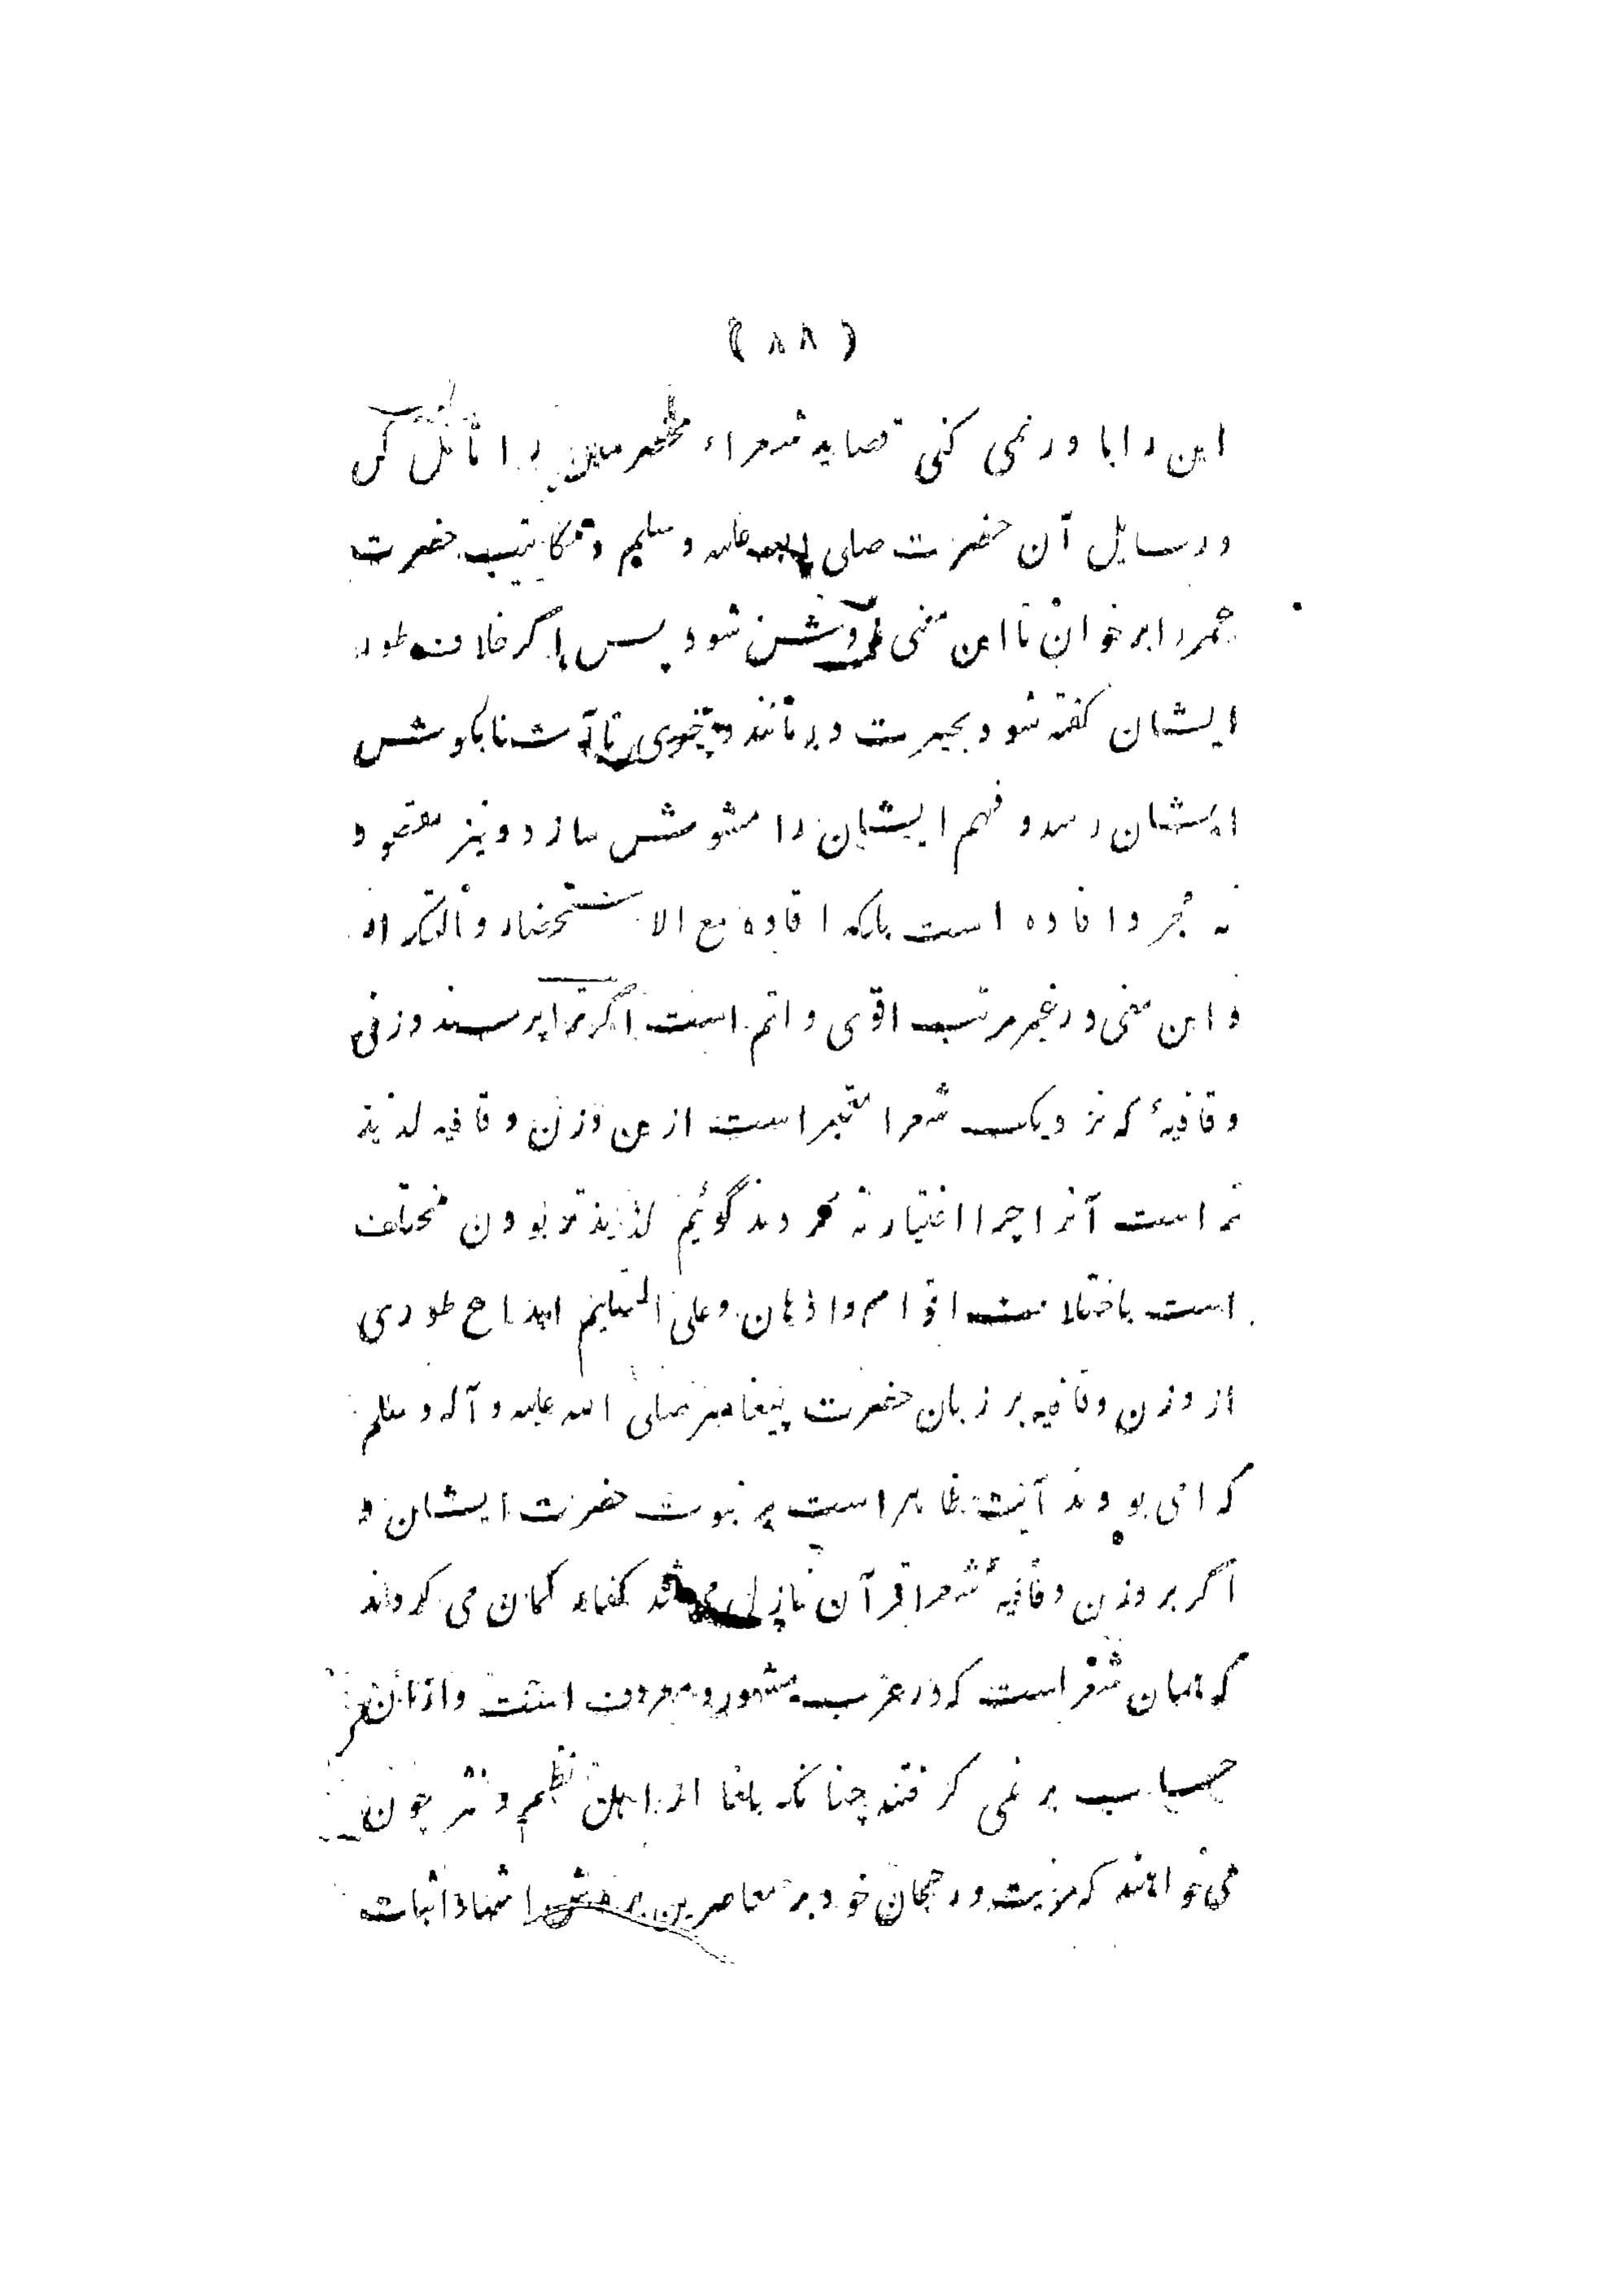 ( ۸۸ )
این را باور نمی کنی قصاید شعراء مخضرمین را تامل کن
و رسایل آن حضرت صلی الله علیه وسلم و مکاتیب حضرت
عمر را برخوان تا این معنی روشن شود پس اگر خلاف طور
ایشان گفته شود بحیرت در مانند و چیزی نا آشنا بگوش
ایشان رسد و فهم ایشان را مشوش سازد و نیز مقصود
نه مجرد افاده است بلکه افاده مع الاستحضار و التکرار
و این معنی در غیر مرتب اقوی و اتم است اگر ترا پرسند وزنی
و قافیهٔ که نزدیک شعرا معتبر است ازین وزن و قافیه لذیذ
تر است آنرا چرا اختیار نه کردند گوئیم لذیذتر بودن مختلف
است باختلاف اقوام و اذهان و علی التسلیم ابداع طوری
از وزن و قافیه بر زبان حضرت پیغامبر صلی الله علیه و آله وسلم
که امی بودند آیت ظاهر است بر نبوت حضرت ایشان و
اگر بر وزن و قافیهٔ شعرا قرآن نازل می شد کفار گمان می کردند
که همان شعر است که در عرب مشهور و معروف است و ازان
حساب بر نمی گرفتند چنانکه بلغا از اهل نظم و نثر چون
می خواهند که مزیت و رجحان خود بر معاصرین اثبات